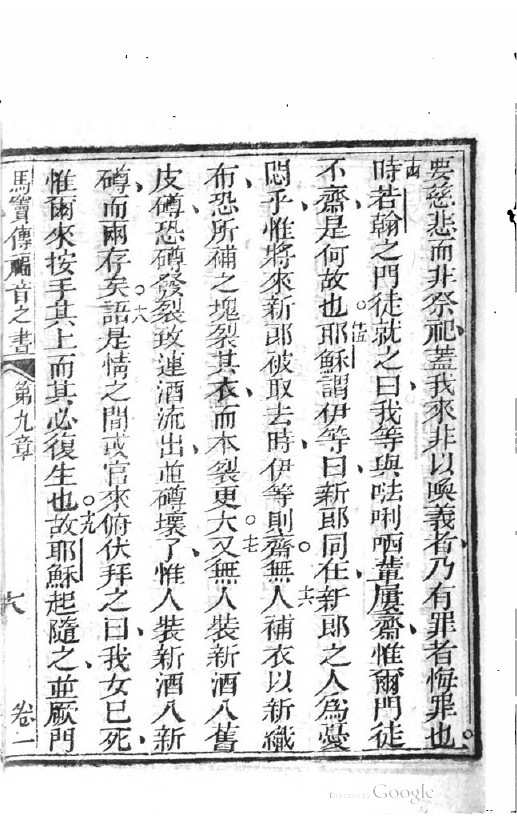 要慈悲而非祭祀蓋我來非以喚義者乃有罪者悔罪也。
十四時若翰之門徒就之曰我等與𠵽唎哂輩屢齋惟爾門徒
不齋是何故也。十五耶穌謂伊等曰新郎同在新郎之人為憂
悶乎惟將來新郎被取去時伊等則齋。十六無人補衣以新織
布恐所補之塊裂其衣而本裂更大。十七又無人裝新酒入舊
皮罇恐罇發裂致連酒流出並罇壞了惟人裝新酒入新
罇而兩存矣。十八語是情之間或官來俯伏拜之曰我女已死、
惟爾來按手其上而其必復生也。十九故耶穌起隨之並厥門
馬竇傳福音之書 第九章 六 卷一
Digitized by Google